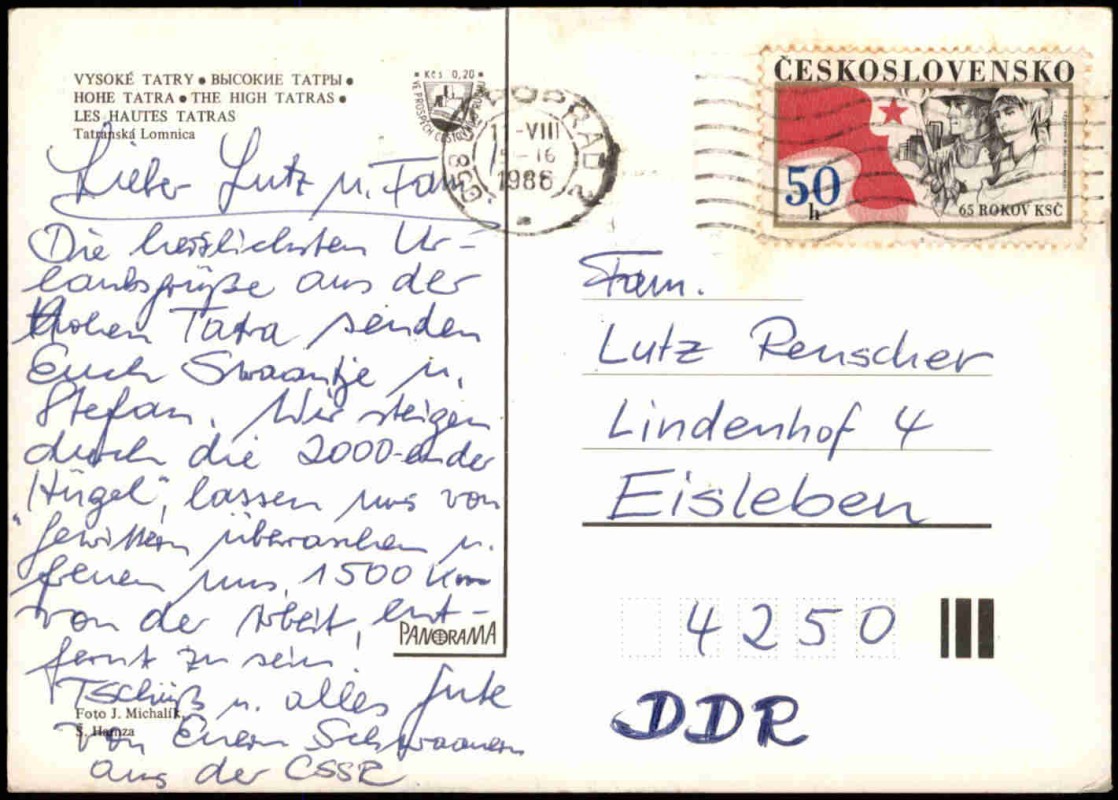 VYSOKÉ TATRY ● ВЫСОКИЕ ТАТРЫ ●
HOHE TATRA ● THE HIGH TATRAS ●
LES HAUTES TATRAS
Tatranská Lomnica
Kčs 0,20
VE PROSPĚCH
Lieber Lutz u. Fam.
Die herzlichsten Ur-
laubsgrüße aus der
Hohen Tatra senden
Euch Swaantje u.
Stefan. Wir steigen
durch die 2000-ender
"Hügel", lassen uns von
Gewittern überaschen u.
freuen uns, 1500 km
von der Arbeit, ent-
fernt zu sein!
Tschüß u. alles Gute
von Euern
aus der CSSR
PANORAMA
Foto J. Michalík,
Š. Hamza
POPRAD
-VIII
-16
1986
ČESKOSLOVENSKO
50
h
65 ROKOV KSČ
Fam.
Lutz Renscher
Lindenhof 4
Eisleben
4250
DDR